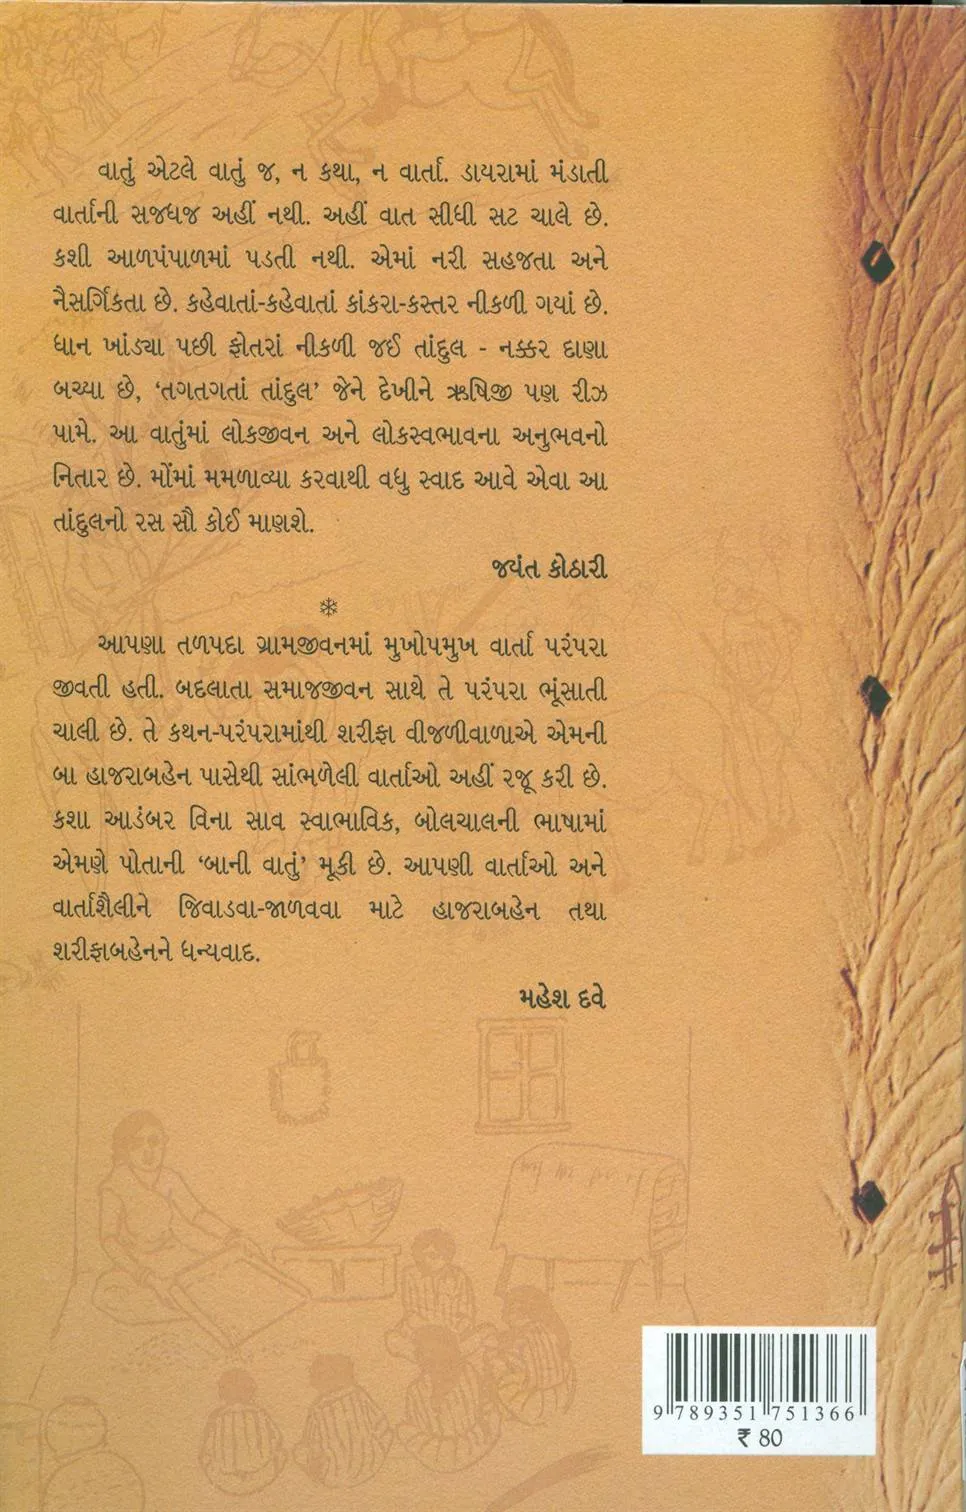 વાતું એટલે વાતું જ, ન કથા, ન વાર્તા. ડાયરામાં મંડાતી
વાર્તાની સજધજ અહીં નથી. અહીં વાત સીધી સટ ચાલે છે.
કશી આળપંપાળમાં પડતી નથી. એમાં નરી સહજતા અને
નૈસર્ગિકતા છે. કહેવાતાં-કહેવાતાં કાંકરા-કસ્તર નીકળી ગયાં છે.
ધાન ખાંડ્યા પછી ફોતરાં નીકળી જઈ તાંદુલ - નક્કર દાણા
બચ્યા છે, ‘તગતગતાં તાંદુલ’ જેને દેખીને ઋષિજી પણ રીઝ
પામે. આ વાતુંમાં લોકજીવન અને લોકસ્વભાવના અનુભવનો
નિતાર છે. મોંમાં મમળાવ્યા કરવાથી વધુ સ્વાદ આવે એવા આ
તાંદુલનો રસ સૌ કોઈ માણશે.
જયંત કોઠારી
આપણા તળપદા ગ્રામજીવનમાં મુખોપમુખ વાર્તા પરંપરા
જીવતી હતી. બદલાતા સમાજજીવન સાથે તે પરંપરા ભૂંસાતી
ચાલી છે. તે કથન-પરંપરામાંથી શરીફા વીજળીવાળાએ એમની
બા હાજરાબહેન પાસેથી સાંભળેલી વાર્તાઓ અહીં રજૂ કરી છે.
કશા આડંબર વિના સાવ સ્વાભાવિક, બોલચાલની ભાષામાં
એમણે પોતાની ‘બાની વાતું’ મૂકી છે. આપણી વાર્તાઓ અને
વાર્તાશૈલીને જિવાડવા-જાળવવા માટે હાજરાબહેન તથા
શરીફાબહેનને ધન્યવાદ.
મહેશ દવે
9 789351 751366
₹ 80